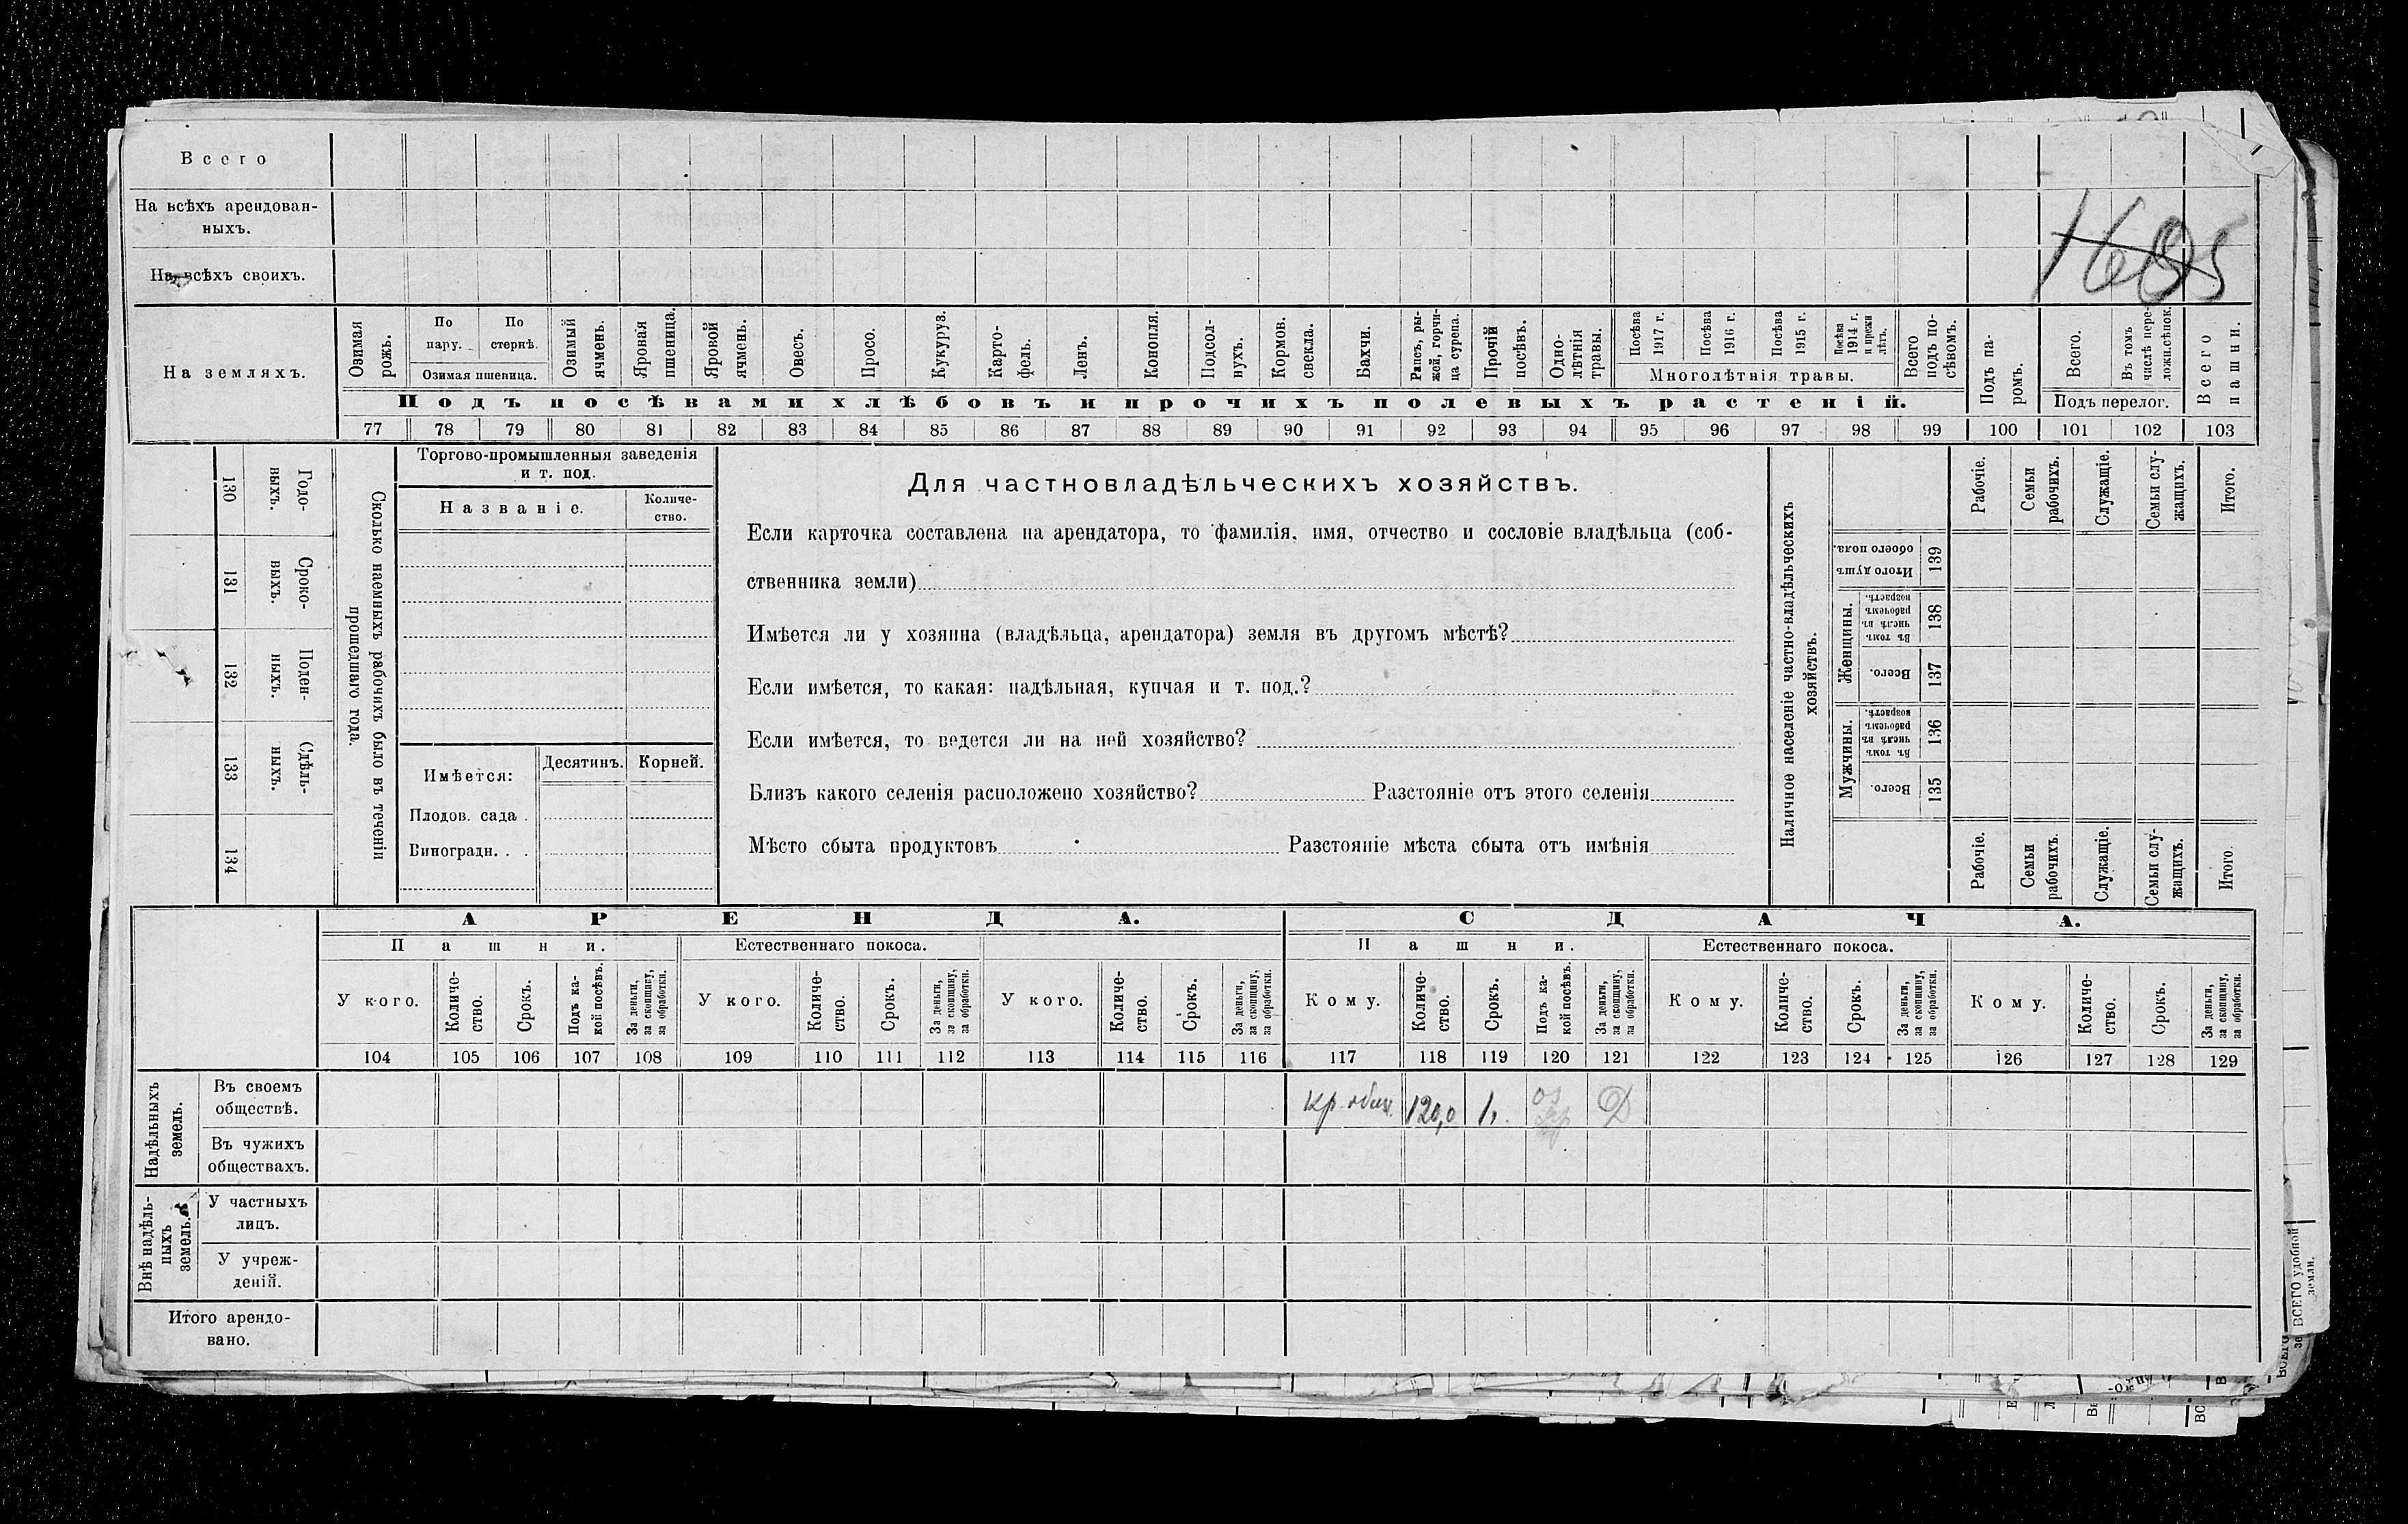 Всего
На всѣхъ арендован-
ныхъ.
На всѣхъ своихъ.
1695
На земляхъ.
Озимая рожь.
По пару.
По стернѣ.
Озимая пшеница.
Озимый ячмень.
Яровая пшеница.
Яровой ячмень.
Овесъ.
Просо.
Кукуруз.
Карто-
фель.
Ленъ.
Конопля.
Подсол-
нухъ.
Кормов. свекла.
Бахчи.
Рапсъ, ры-
жей, горчи-
ца сурепа.
Прочій посѣвъ.
Одно-
лѣтнія травы.
Посѣва 1917 г.
Посѣва 1916 г.
Посѣва 1915 г.
Посѣва 1914 г. и прежн лѣтъ.
Многолѣтнія травы.
Всего подъ по-
сѣвомъ.
Подъ па-
ромъ.
Всего.
Въ томъ числѣ пере-
ложн.сѣнок.
Подъ перелог.
Всего пашни.
Подъ посѣвами хлѣбовъ и прочихъ полевыхъ растеній.
77 78 79 80 81 82 83 84 85 86 87 88 89 90 91 92 93 94 95 96 97 98 99 100 101 102 103
130 Годо-
ныхъ.
131 Сроко-
выхъ.
132 Поден-
ныхъ.
133 Сдѣль-
ныхъ.
134
Сколько наемныхъ рабочихъ было въ теченіи
прошедшаго года.
Торгово-промышленныя заведенія
и т. под.
Названіе.
Количе-
ство.
Имѣется:
Десятинъ.
Корней.
Плодов. сада .
Виноградн. . .
Для частновладѣльческихъ хозяйствъ.
Если карточка составлена на арендатора, то фамилія, имя, отчество и сословіе владѣльца (соб-
ственника земли)
Имѣется ли у хозяина (владѣльца, арендатора) земля въ другомъ мѣстѣ?
Если имѣется, то какая: надѣльная, купчая и т. под.?
Если имѣется, то ведется ли на ней хозяйство?
Близъ какого селенія расположено хозяйство? Разстояніе отъ этого селенія
Мѣсто сбыта продуктовъ Разстояніе мѣста сбыта отъ имѣнія
Наличное населеніе частно-владѣльческихъ
хозяйствъ.
Рабочіе.
Семьи рабочихъ.
Служащіе.
Семьи слу-
жащихъ.
Итого.
Итого душъ обоего пола. 139
Женщины.
Въ томъ числѣ въ рабочемъ возрастѣ. 138
Всего. 137
Мужчины.
Въ томъ числѣ въ рабочемъ возрастѣ. 136
Всего. 135
Рабочіе.
Семьи рабочихъ.
Служащіе.
Семьи слу-
жащихъ.
Итого.
АРЕНДА.
СДАЧА.
Пашни.
Естественнаго покоса.
Пашни.
Естественнаго покоса.
У кого.
Количе-
ство.
Срокъ.
Подъ ка-
кой посѣвъ.
За деньги, за скопщину, за обработки.
У кого.
Количе-
ство.
Срокъ.
За деньги, за скопщину, за обработки.
У кого.
Количе-
ство.
Срокъ.
За деньги, за скопщину, за обработки.
Кому.
Количе-
ство.
Срокъ.
Подъ ка-
кой посѣвъ.
За деньги, за скопщину, за обработки.
Кому.
Количе-
ство.
Срокъ.
За деньги, за скопщину, за обработки.
Кому.
Количе-
ство.
Срокъ.
За деньги, за скопщину, за обработки.
104 105 106 107 108 109 110 111 112 113 114 115 116 117 118 119 120 121 122 123 124 125 126 127 128 129
Надѣльныхъ земель.
Въ своемъ
обществѣ.
кр. общ. 120,0 1, оз Д
Въ чужихъ
обществахъ.
Внѣ надѣль-
ныхъ земель.
У частныхъ
лицъ.
У учреж-
деній.
Итого арендо-
вано.
ВСЕГО удобной
земли.